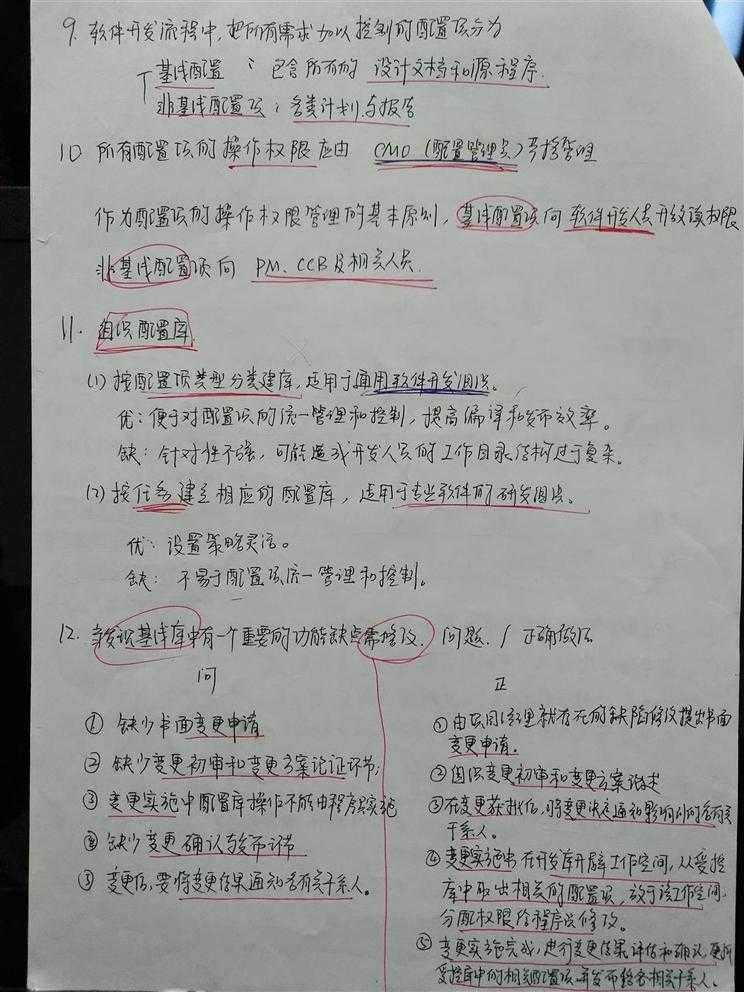 9. 软件开发流程中，把所有需求加以控制的配置项分为
基线配置：包含所有的设计文档和源程序.
非基线配置项：各类计划与报告
10 所有配置项的操作权限应由 CMO（配置管理员）严格管理
作为配置项的操作权限管理的基本原则，基线配置项向 软件开发人员开放读权限
非基线配置项向 PM、CCB及相关人员.
11. 组织配置库
(1) 按配置项类型分类建库，适用于通用软件开发组织。
优：便于对配置项的统一管理和控制，提高编译和发布效率。
缺：针对性不强，可能造成开发人员的工作目录结构过于复杂。
(2) 按任务建立相应的配置库，适用于专业软件的研发组织。
优：设置策略灵活。
缺：不易于配置项统一管理和控制。
12. 发现基线库中有一个重要的功能缺点需修改. 问题. / 正确做法
问
正
① 缺少书面变更申请
② 缺少变更初审和变更方案论证环节;
③ 变更实施中配置库操作不能由程序员实施
④ 缺少变更确认与发布环节
⑤ 变更后,要将变更结果通知各有关干系人。
①由项目经理就存在的缺陷修改提出书面
变更申请。
②组织变更初审和变更方案论证
③在变更获批后,将变更决定通知影响到的各有关
干系人。
④变更实施出 在开发库开辟工作空间，从受控
库中取出相关的配置项，放于该工作空间,
分配权限给程序员修改。
⑤变更实施完成,进行变更结果评估和确认,更新
受控库中的相关配置项,并发布给各相关干系人。